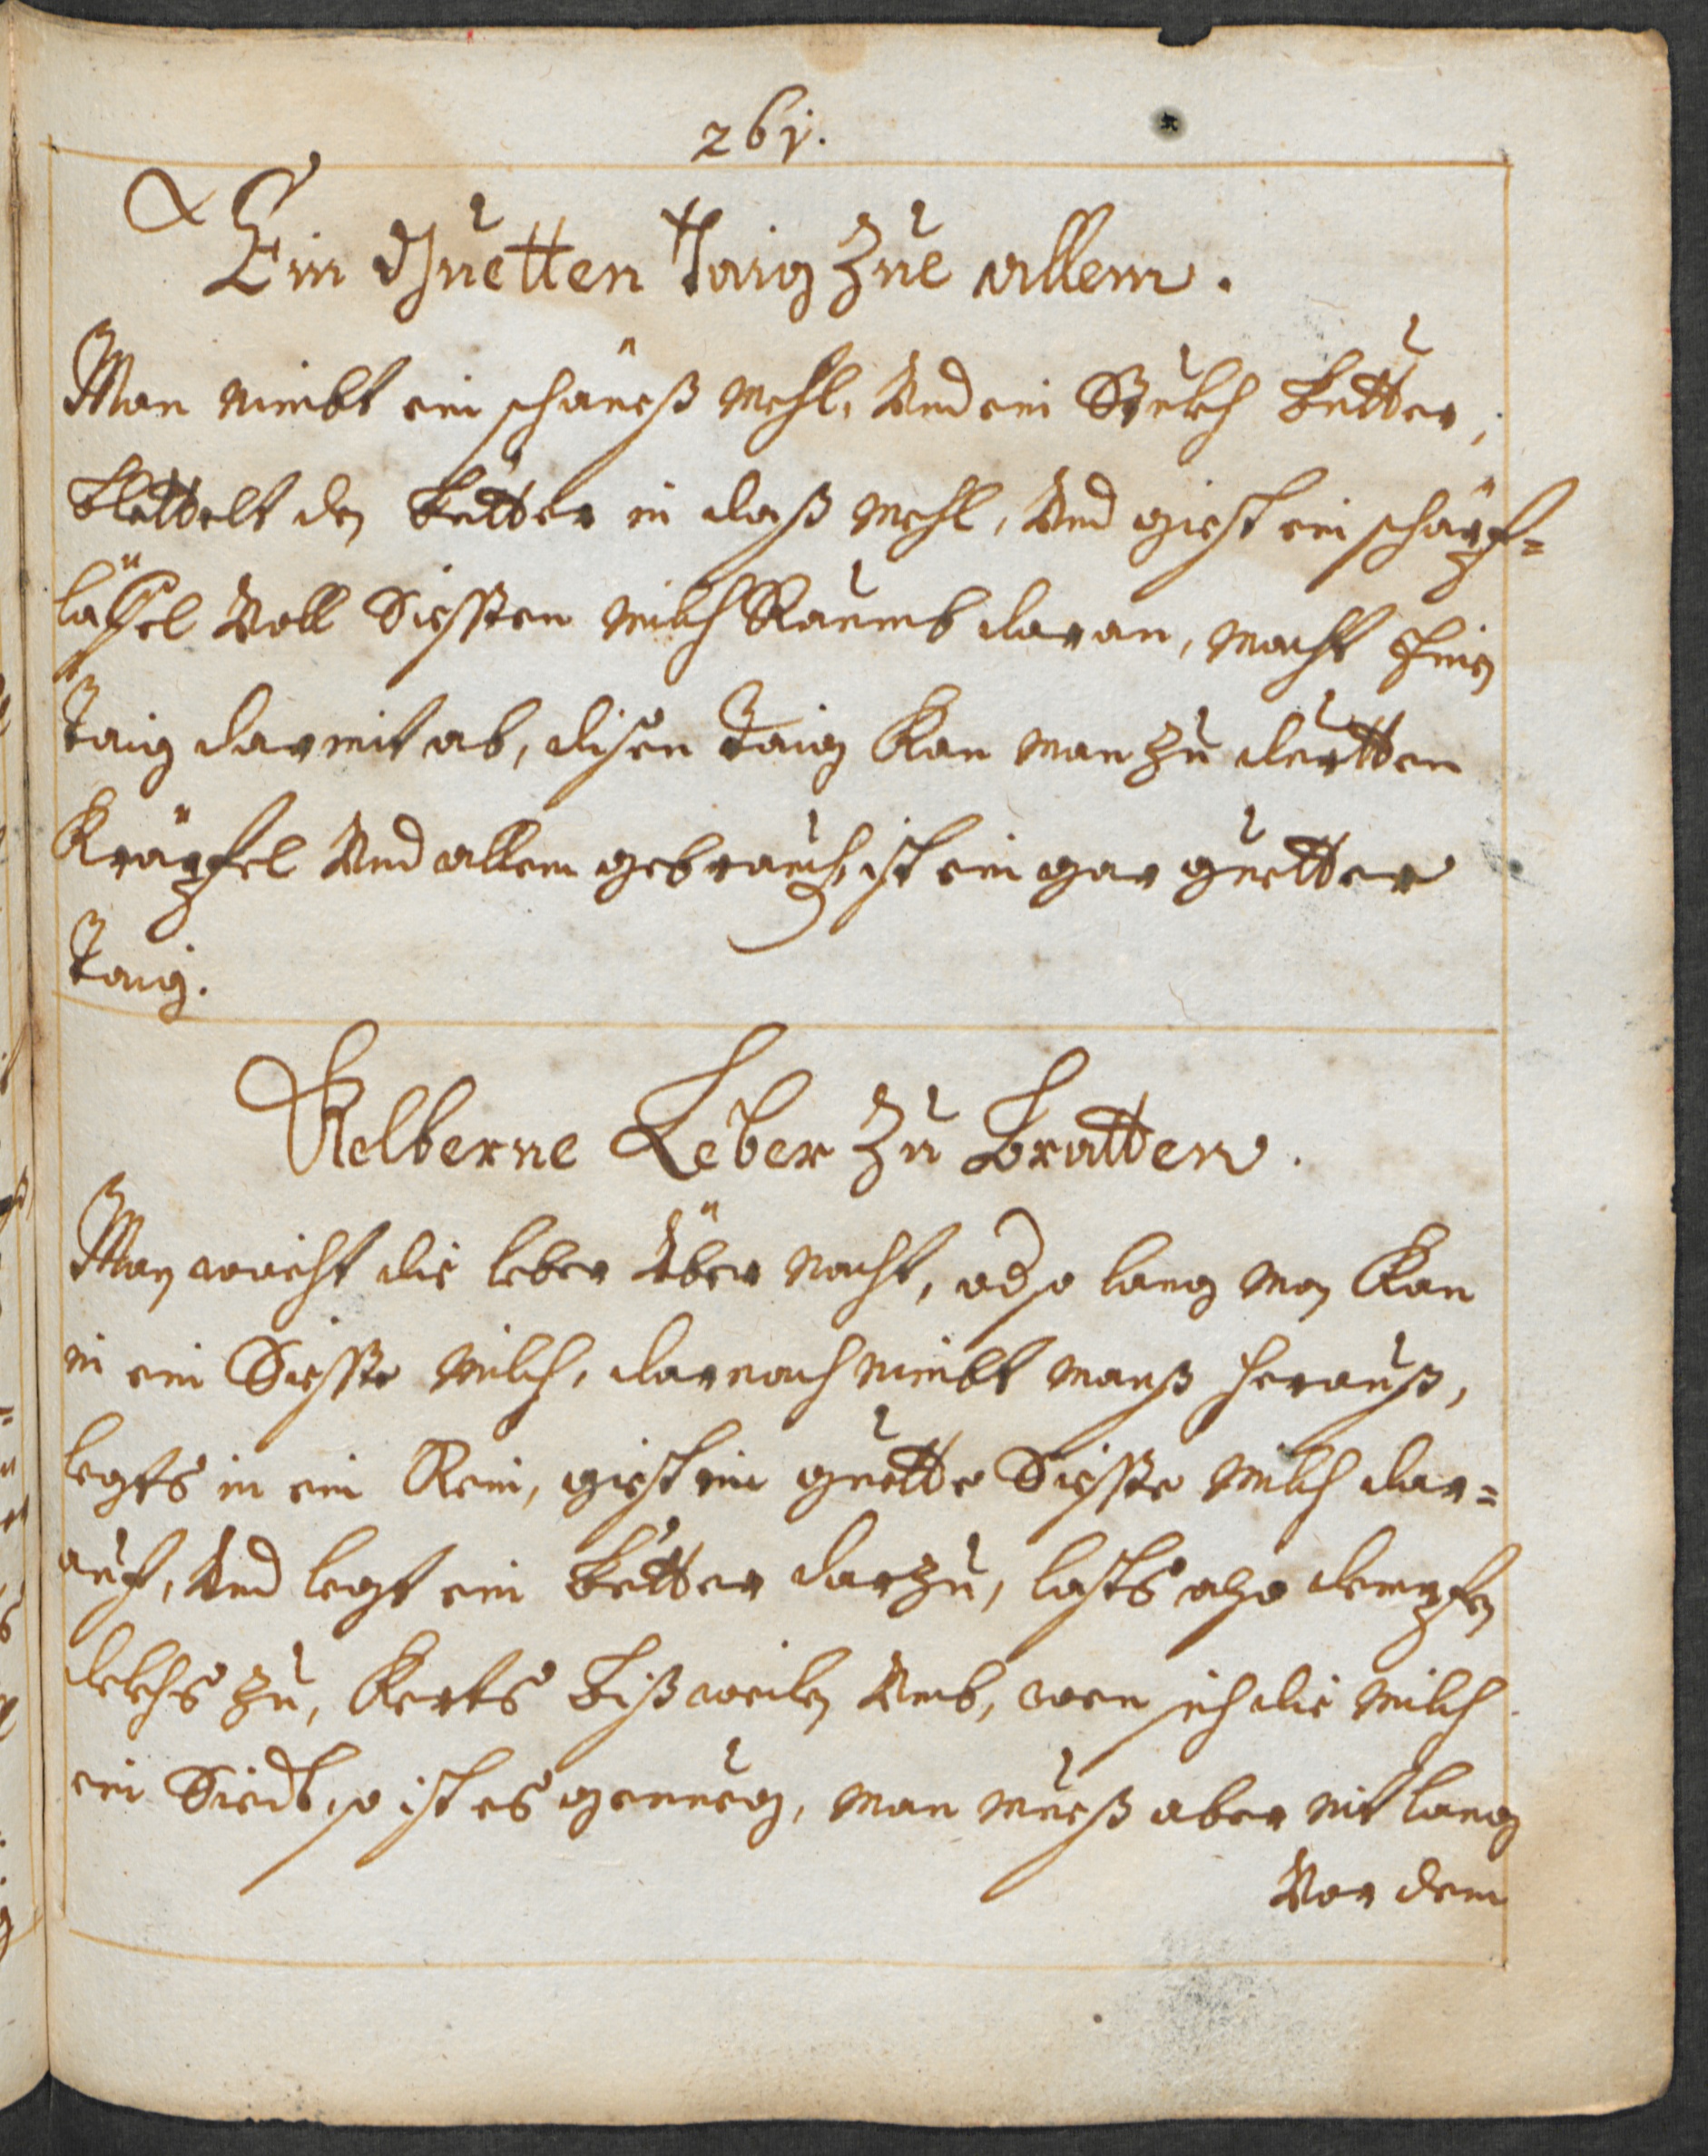 261.
Ein Guetten Taig Zue allem.
Man nimbt ein schäneß Mehl, Und ein Stukh Butter,
blettelt den Butter in daß Mehl, Und giest ein schäpf=
läffel Voll Siessen Milch Raumb daran, macht ein
Taig darmit ab, disen Taig Kan man zu dortten
Kräpfel Und allem gebrauch, ist ein gar guetter
Taig.
Kelberne Leber Zu Bratten.
Man waicht die leber Über Nacht, od so lang man Kan
in ein Siesse Milch, darnach nimbt manß herauß,
legts in ein Rein, giest ein guette Siesse Milch dar=
auf, Und legt ein Butter darzu, lasts also dempfen
dekhs zu, Kerts bißweilen Umb, wan sich die Milch
ein Siedt, so ist es genueg, man mueß aber nit lang
Vor dem